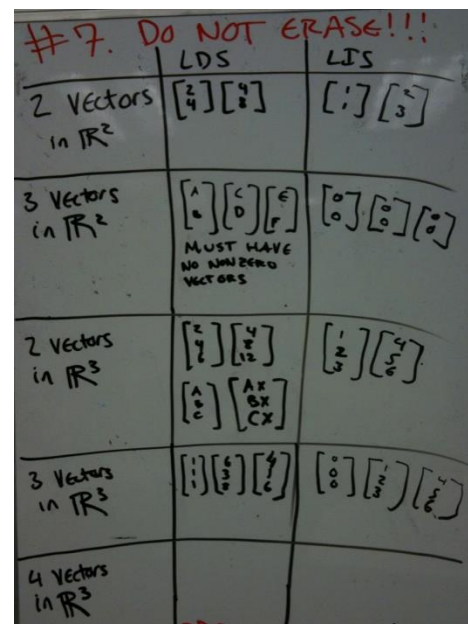 #7. DO NOT ERASE!!!
LDS LIS
2 Vectors
in ℝ²
[2 4] [4 8] [1 1] [2 3]
3 Vectors
in ℝ²
[A B] [C D] [E F] [0 0] [0 0] [0 0]
MUST HAVE
NO NONZERO
VECTORS
2 Vectors
in ℝ³
[2 4 6] [4 8 12] [1 2 3] [4 5 6]
[A B C] [AX BX CX]
3 Vectors
in ℝ³
[1 1 1] [6 3 8] [0 0 0] [1 2 3] [4 5 6]
4 Vectors
in ℝ³